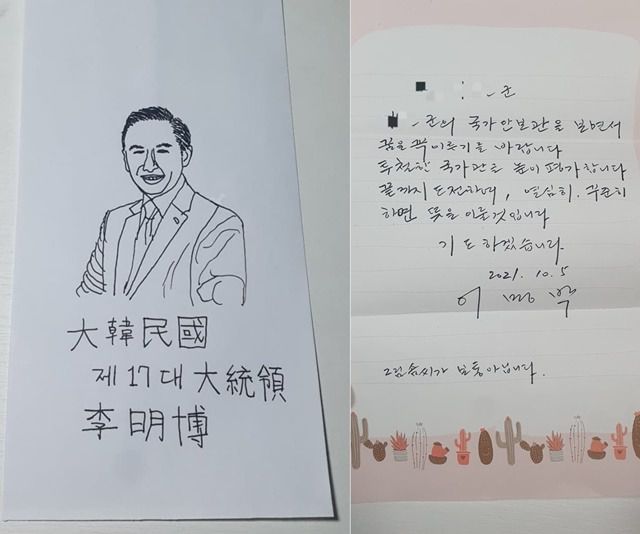 大韓民國
제 17 대 大統領
李明博
군
군의 국가안보관을 보면서
꿈을 꼭 이루기를 바랍니다
투철한 국가관을 높이 평가합니다
끝까지 도전하며, 열심히. 꾸준히
하면 뜻을 이룰것입니다
기도하겠습니다.
2021. 10. 5
이 명 박
그림솜씨가 보통아닙니다.